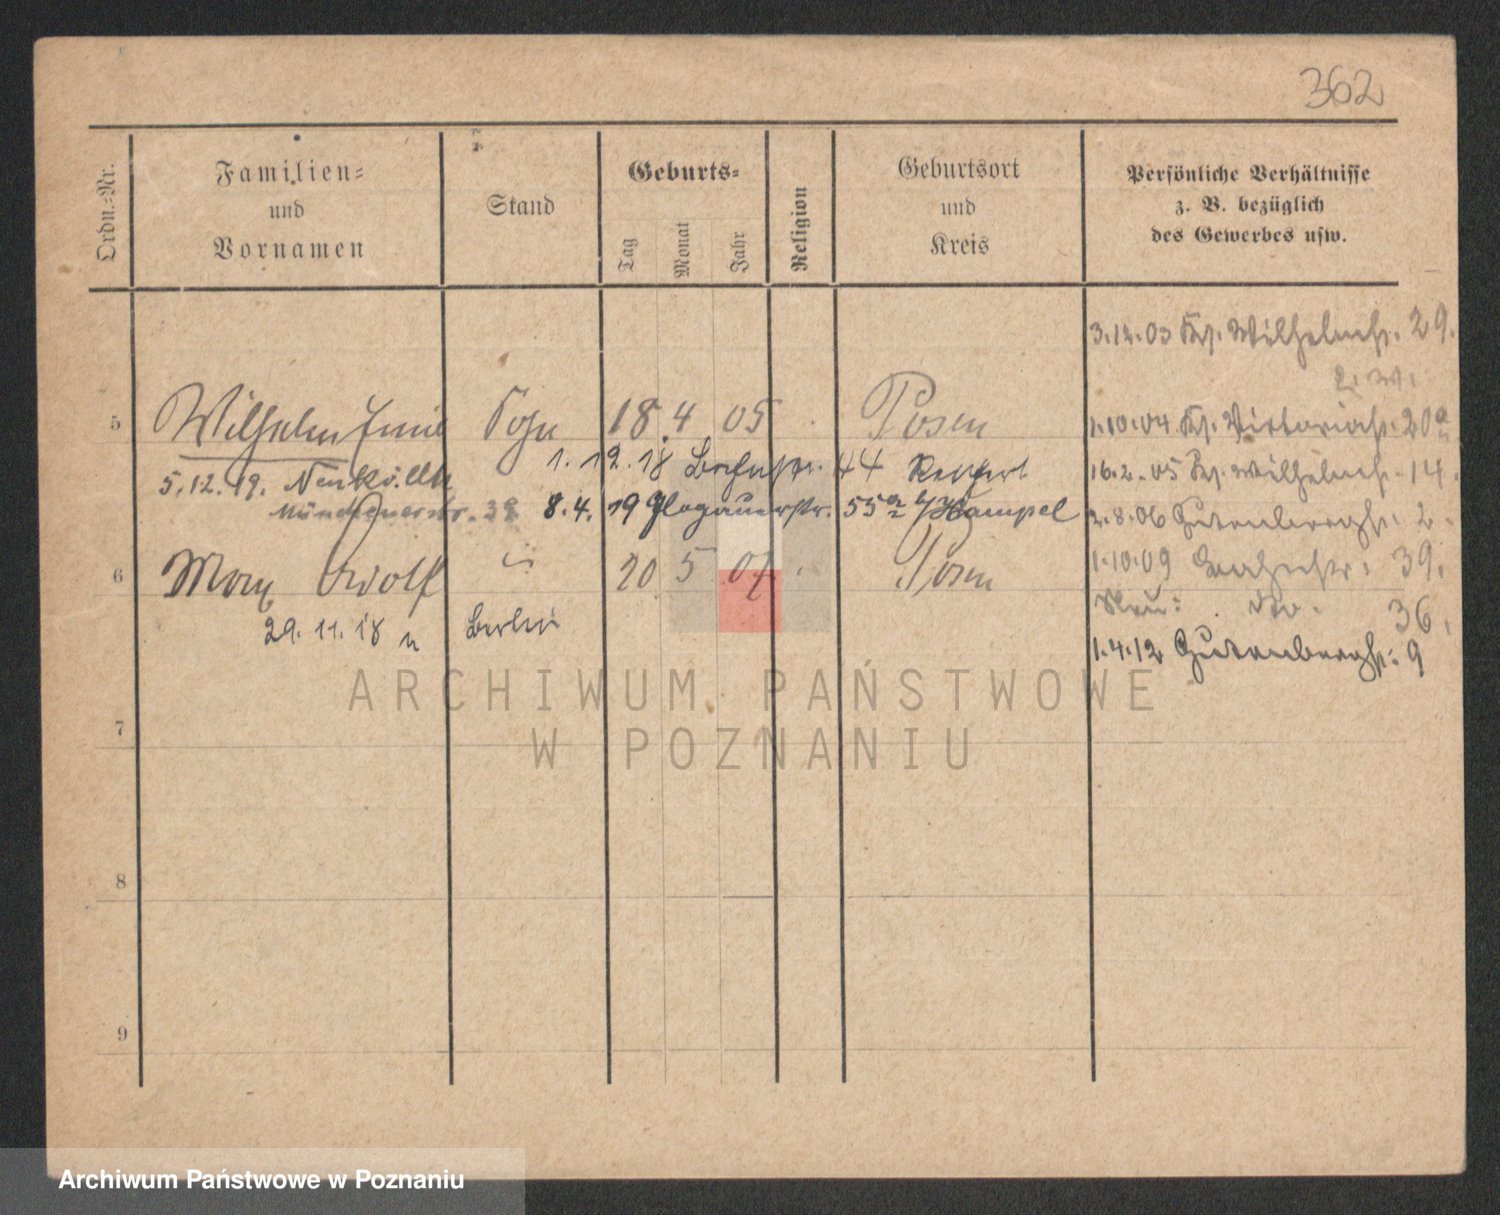 362
Ordn.-Nr.
Familien-
und
Vornamen
Stand
Geburts-
Tag
Monat
Jahr
Religion
Geburtsort
und
Kreis
Persönliche Verhältnisse
z. B. bezüglich
des Gewerbes usw.
3.12.03 Wilhelmstr. 29.
5 Wilhelm Emil Sohn 18 4 05 Posen
1.10.04 Viktoriastr. 20a
1.12.18 44
16.2.05 Wilhelmstr. 14.
5.12.19. Neukölln
8.4.19 Glogauerstr. 55a b/ Hampel
2.8.06 Gutenbergstr. 2.
39
6 Max Adolf 20 5 07 Posen
1.10.09 39.
Neu: do. 36.
29.11.18 n Berlin
1.4.12 Gutenbergstr. 9
7
8
9
ARCHIWUM PAŃSTWOWE
W POZNANIU
Archiwum Państwowe w Poznaniu